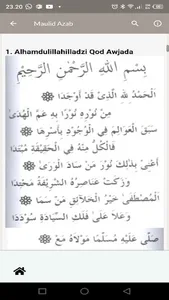 23.20
Maulid Azab
1. Alhamdulillahilladzi Qod Awjada
بِسْمِ اللهِ الرَّحْمٰنِ الرَّحِيْمِ
اَلْحَمْدُ لِلّٰهِ الَّذِيْ قَدْ اَوْجَدَا
مِنْ نُوْرِهِ نُوْرًا بِهِ عَمَّ الْهُدَى
سَبَقَ الْعَوَالِمَ فِي الْوُجُوْدِ بِأَسْرِهَا
فَالْكُلُّ مِنْهُ فِي الْحَقِيْقَةِ مُبْتَدَا
أَعْنِيْ بِذٰلِكَ نُوْرَ مَنْ سَادَ الْوَرَى
وَزَكَتْ عَنَاصِرُهُ الشَّرِيْفَةُ مَحْتِدَا
اَلْمُصْطَفَى خَيْرُ الْخَلَائِقِ مَنْ سَمَا
وَعَلَا عَلَى فَلَكِ السِّيَادَةِ سُؤْدَدَا
صَلَّى عَلَيْهِ مُسَلِّمًا مَوْلَاهُ مَعْ